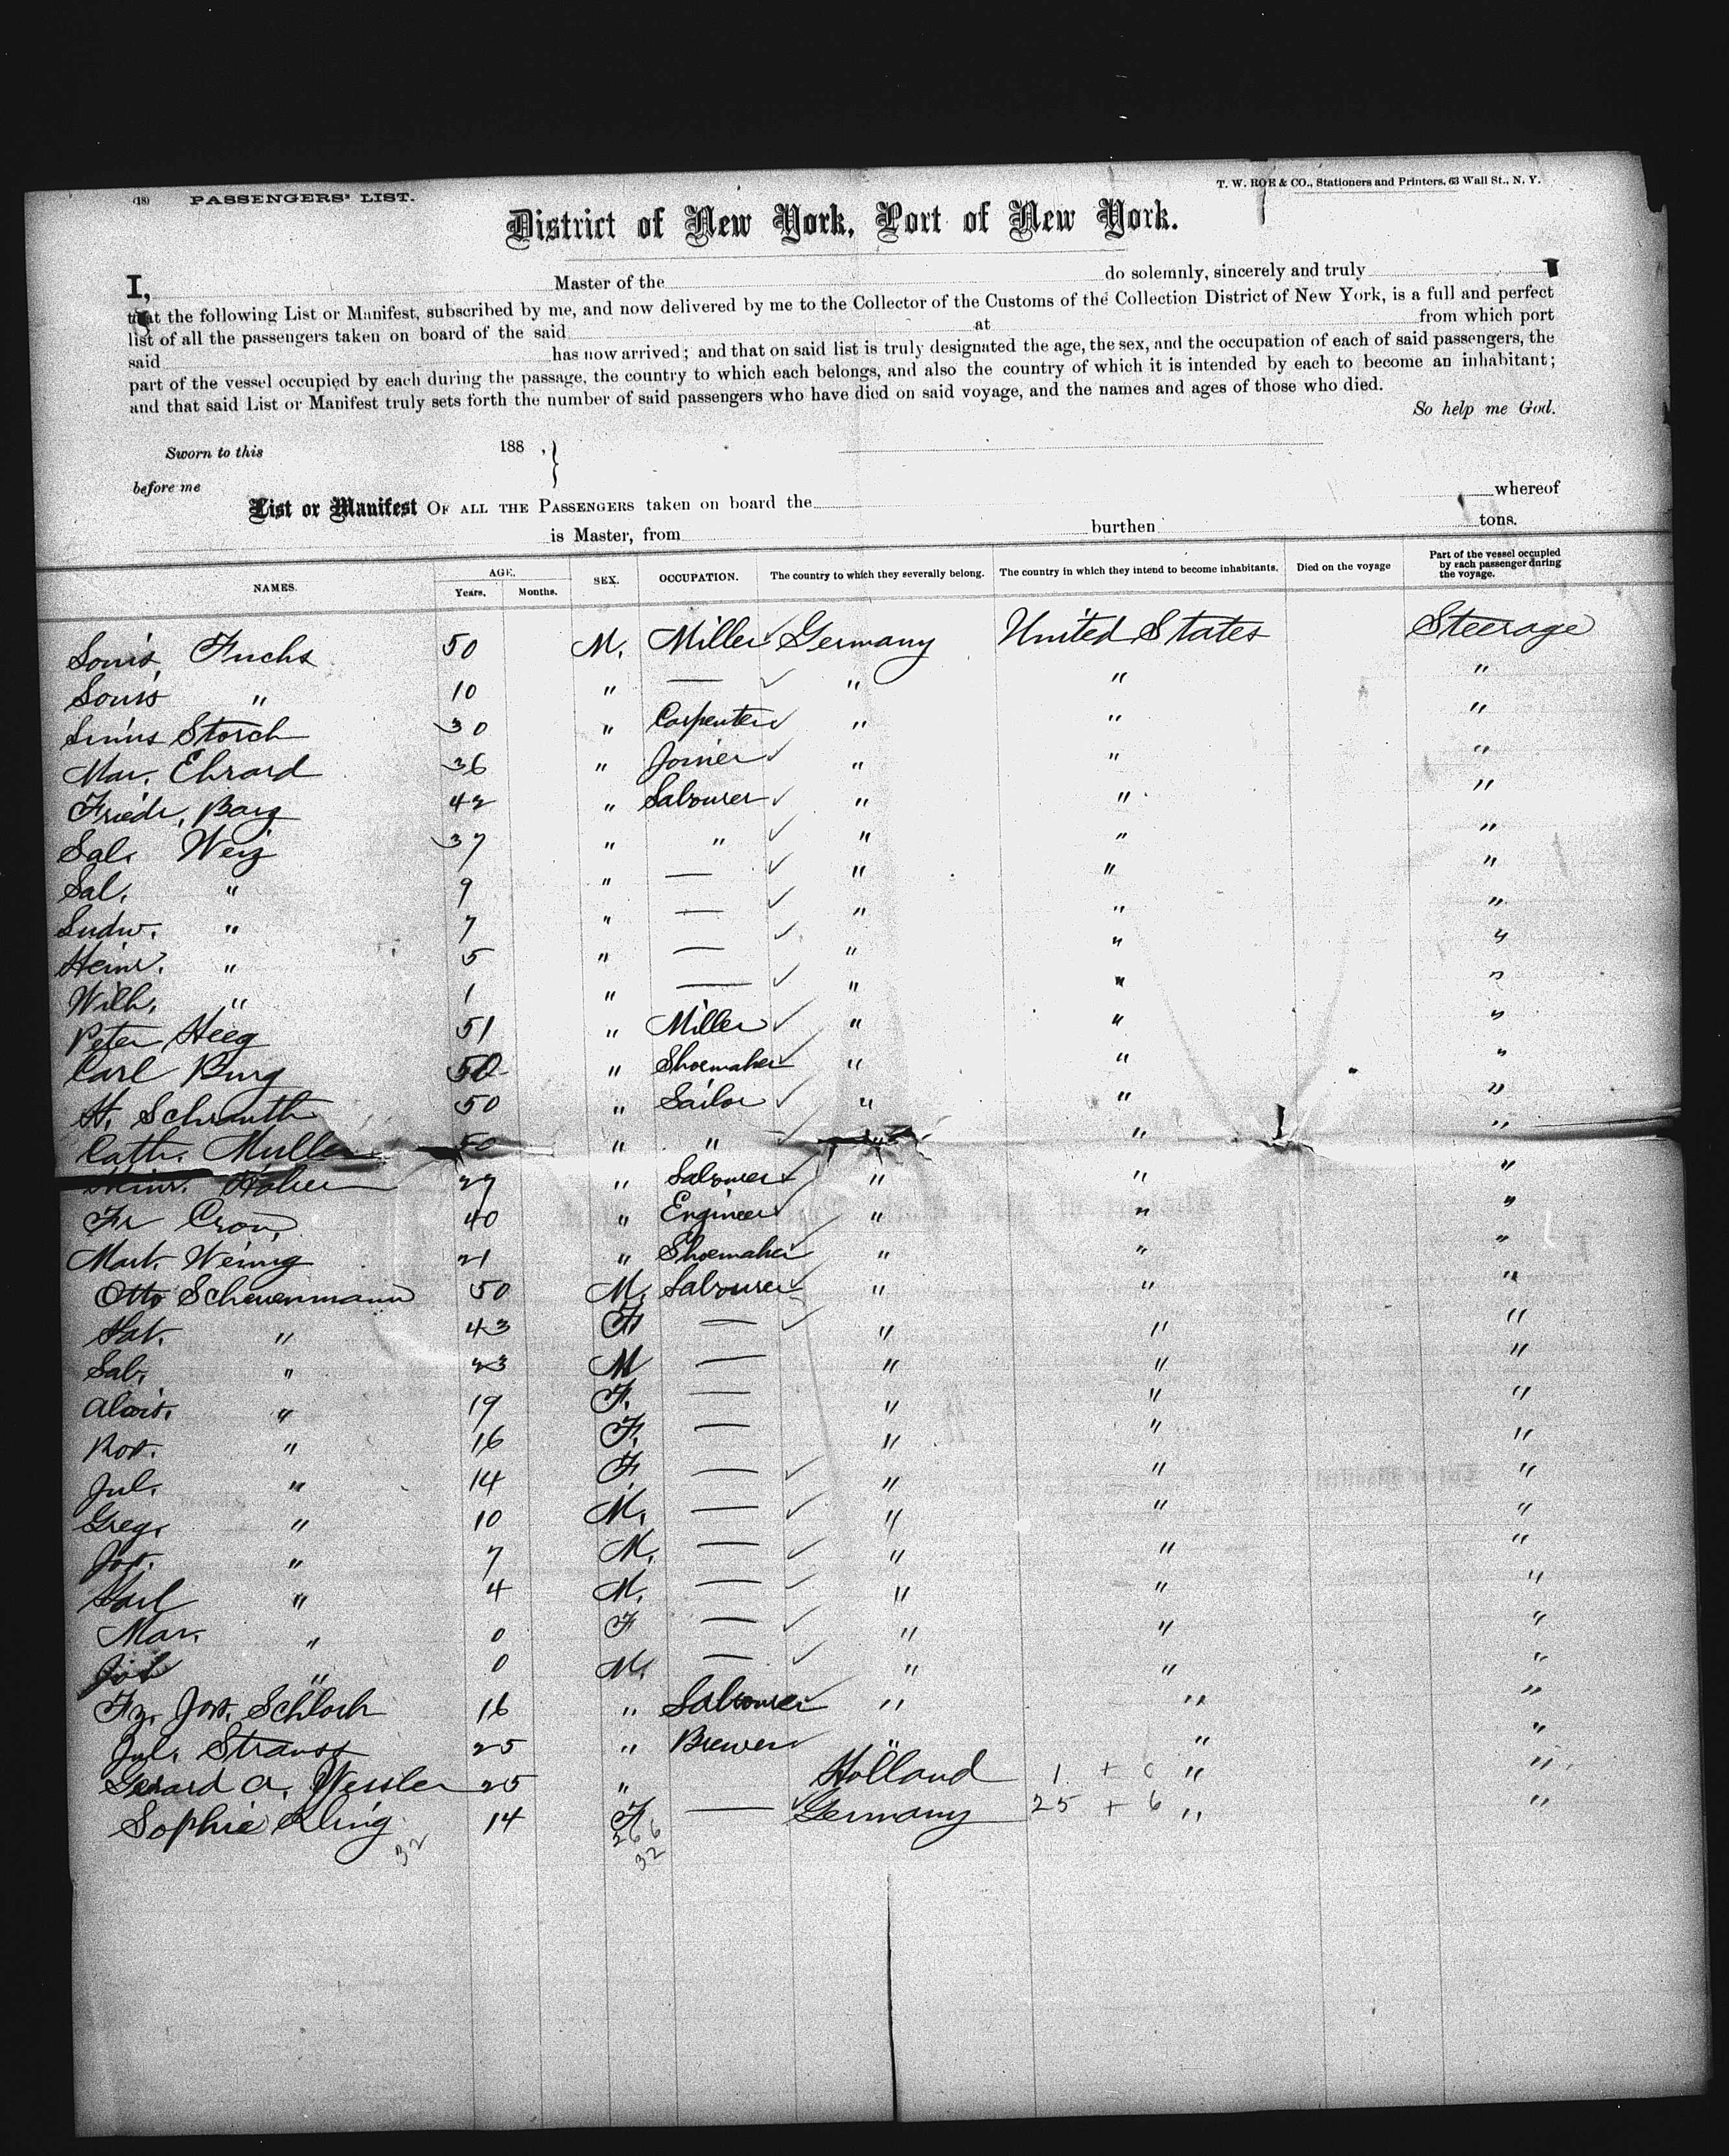 (18) PASSENGERS' LIST.
T. W. ROE & CO., Stationers and Printers, 63 Wall St., N. Y.
District of New York, Port of New York.
I, Master of the do solemnly, sincerely and truly
that the following List or Manifest, subscribed by me, and now delivered by me to the Collector of the Customs of the Collection District of New York, is a full and perfect
list of all the passengers taken on board of the said at from which port
said has now arrived; and that on said list is truly designated the age, the sex, and the occupation of each of said passengers, the
part of the vessel occupied by each during the passage, the country to which each belongs, and also the country of which it is intended by each to become an inhabitant;
and that said List or Manifest truly sets forth the number of said passengers who have died on said voyage, and the names and ages of those who died.
So help me God.
Sworn to this 188 ,
before me
List or Manifest OF ALL THE PASSENGERS taken on board the whereof
is Master, from burthen tons.
NAMES. AGE. Years. Months. SEX. OCCUPATION. The country to which they severally belong. The country in which they intend to become inhabitants. Died on the voyage Part of the vessel occupied by each passenger during the voyage.
Louis Fuchs 50 M. Miller Germany United States Steerage
Louis " 10 " — " " "
Storch 30 " Carpenter " " "
Mar. Ehrard 36 " Joiner " " "
Friedr. Barg 42 " Labourer " " "
Sal. Weiz 37 " " " " "
Sal. " 9 " — " " "
Ludw. " 7 " — " " "
Heinr. " 5 " — " " "
Wilh. " 1 " — " " "
Peter Heeg 51 " Miller " " "
Carl Burg 50 " Shoemaker " " "
H. Schrauth 50 " Sailor " " "
Cath. Muller 50 " " " " "
Heinr. 27 " Labourer " " "
Fr Cron 40 " Engineer " " "
Mart. Weinig 21 " Shoemaker " " "
Otto Scheuermann 50 M. Labourer " " "
Kat. " 43 F — " " "
Sab. " 23 M — " " "
Alois. " 19 F. — " " "
Ros. " 16 F. — " " "
Jul. " 14 F. — " " "
Greg. " 10 M. — " " "
Jos. " 7 M. — " " "
Karl " 4 M. — " " "
Mar. " 0 F — " " "
" 0 M. — " " "
Fz. Jos. Schloch 16 " Labourer " " "
Jul. Strauss 25 " Brewer " " "
Gerard A. Wessler 25 " Holland 1 + 0 " "
Sophie Kling 14 F — Germany 25 + 6 " "
32 26 6
32